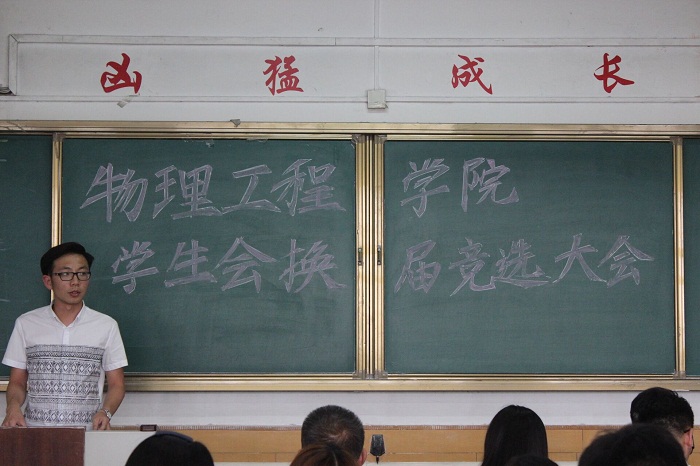 凶猛成长
物理工程学院
学生会换届竞选大会